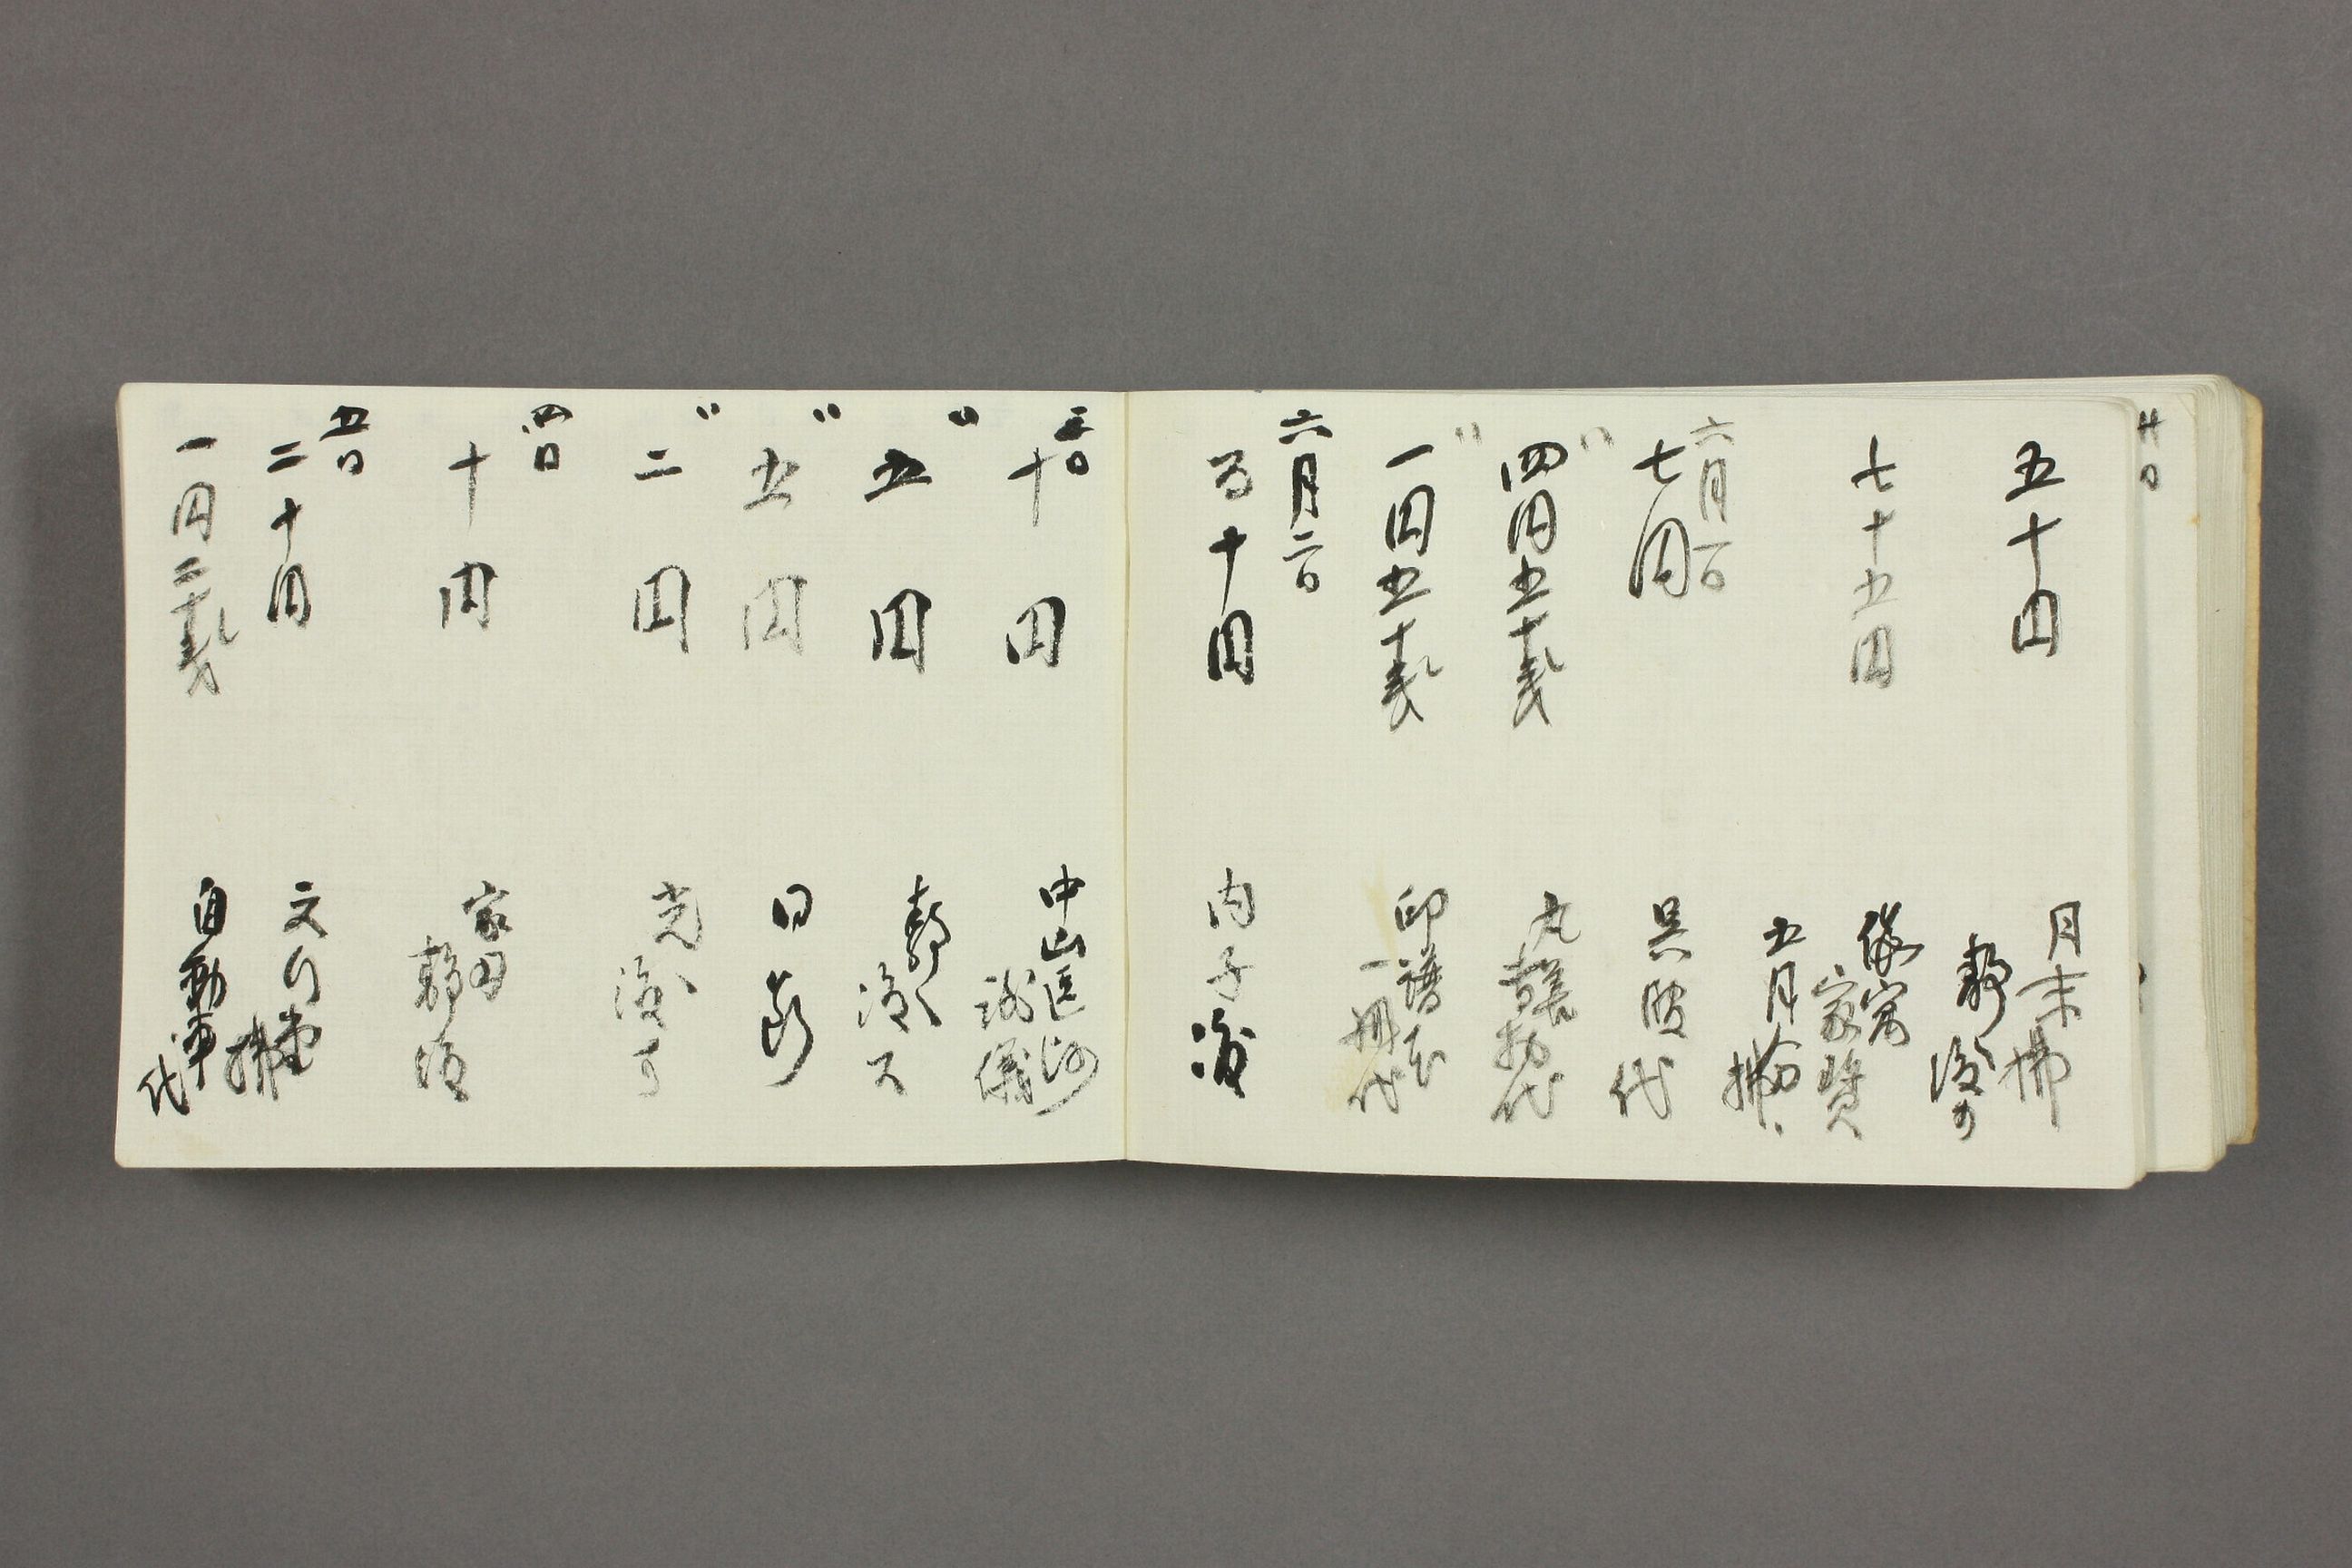 五十円
月末拂
静渡ス
七十五円
仮寓
家賃
五月分
拂
六月一日
七円
呉服
代
〃
四円五十銭
丸善
払代
〃
一円五十銭
印譜本
一冊代
六月二日
百十円
内子渡
三日
十円
中山医師
謝儀
〃
五円
静へ
渡ス
〃
五円
日
〃
二円
光へ
渡ス
四日
十円
家用
静渡
五日
二十円
文行堂
拂
一円二十銭
自動車
代
廿日